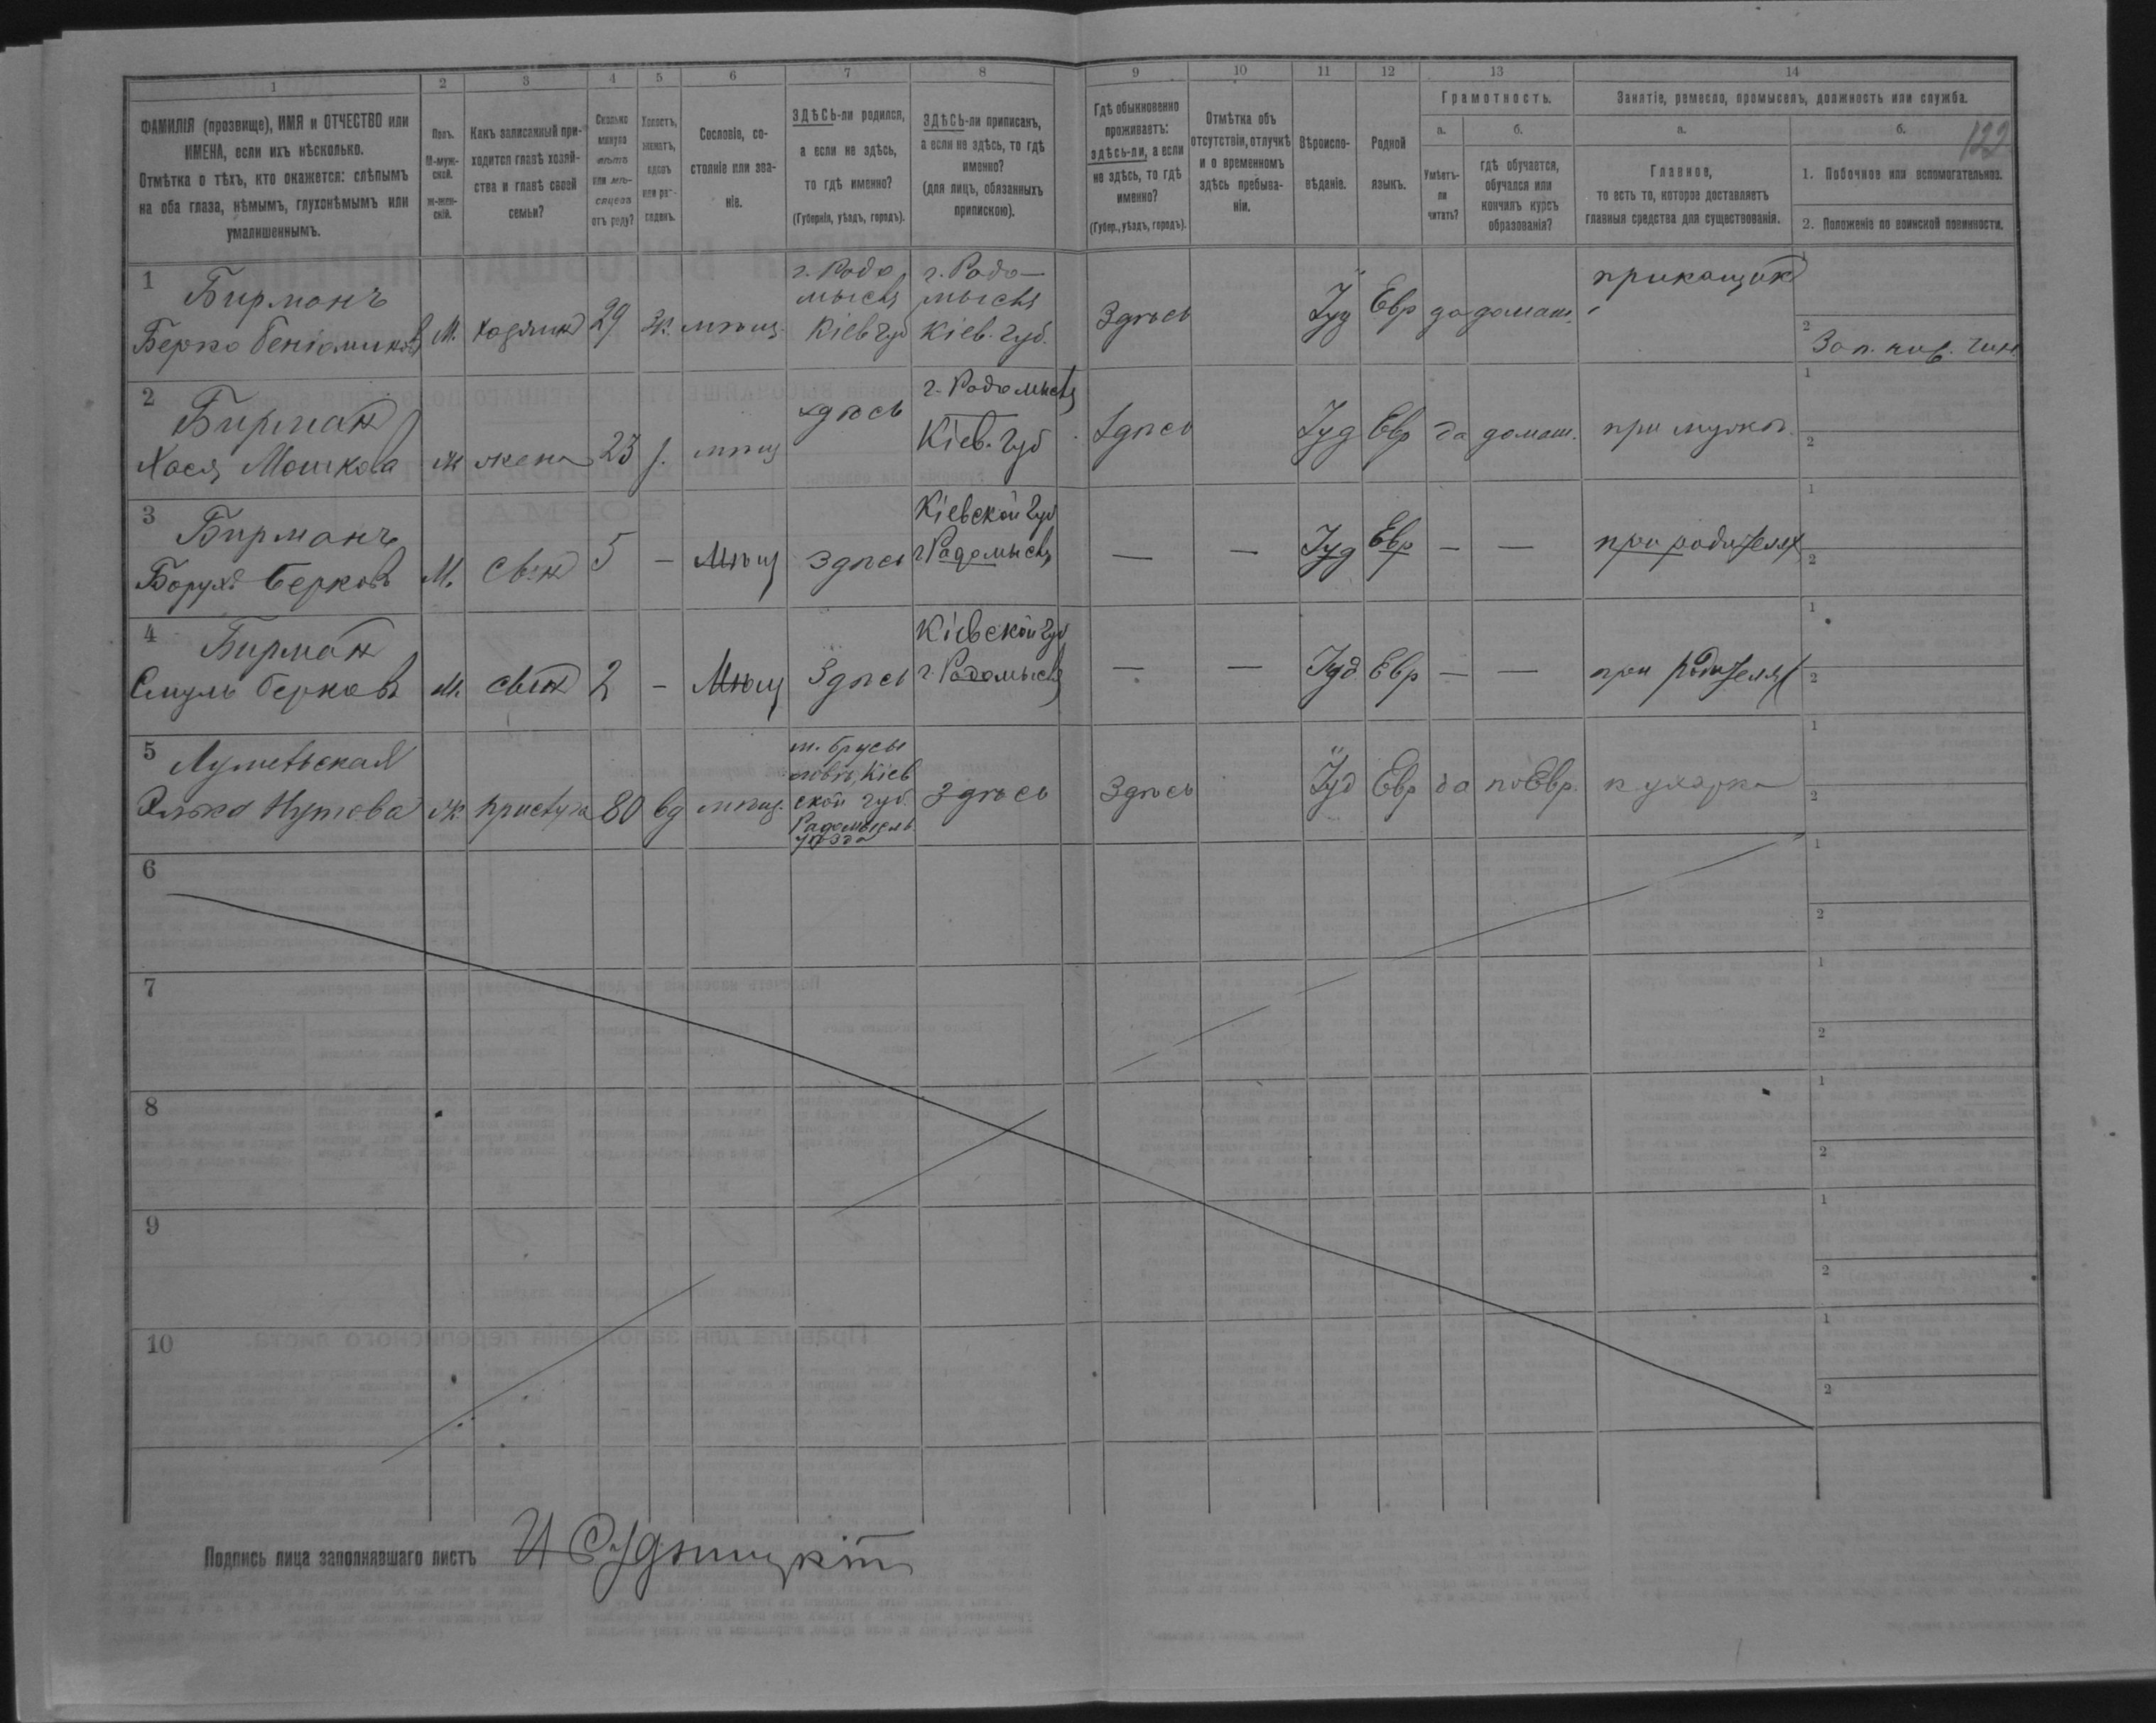 1 2 3 4 5 6 7 8 9 10 11 12 13 14
ФАМИЛІЯ (прозвище), ИМЯ и ОТЧЕСТВО или
ИМЕНА, если ихъ нѣсколько.
Отмѣтка о тѣхъ, кто окажется: слѣпымъ
на оба глаза, нѣмымъ, глухонѣмымъ или
умалишеннымъ.
Полъ.
М-муж-
ской.
ж-жен-
скій.
Какъ записанный при-
ходится главѣ хозяй-
ства и главѣ своей
семьи?
Сколько
минуло
лѣтъ
или мѣ-
сяцевъ
отъ роду?
Холостъ,
женатъ,
вдовъ
или ра-
зведенъ.
Сословіе, со-
стояніе или зва-
ніе.
ЗДѢСЬ-ли родился,
а если не здѣсь,
то гдѣ именно?
(Губернія, уѣздъ, городъ).
ЗДѢСЬ-ли приписанъ,
а если не здѣсь, то гдѣ
именно?
(для лицъ, обязанныхъ
припискою).
Гдѣ обыкновенно
проживаетъ:
здѣсь-ли, а если
не здѣсь, то гдѣ
именно?
(Губер., уѣздъ, городъ).
Отмѣтка объ
отсутствіи, отлучкѣ
и о временномъ
здѣсь пребыва-
ніи.
Вѣроиспо-
вѣданіе.
Родной
языкъ.
Грамотность.
а.
Умѣетъ-
ли
читать?
б.
гдѣ обучается,
обучался или
кончилъ курсъ
образованія?
Занятіе, ремесло, промыселъ, должность или служба.
а.
Главное,
то есть то, которое доставляетъ
главныя средства для существованія.
б.
122
1. Побочное или вспомогательное.
2. Положеніе по воинской повинности.
1
Бирманъ
Берко Беніоминовъ
М.
хозяинъ
29
ж.
мѣщ.
г. Радо
мысль
Кіев губ
г. Радо-
мысль
Кіев. губ.
Здѣсь
Іуд
Евр
да
домаш.
прикащикъ
2
Зап. ниж. чин.
2
Бирман
Хася Мошкова
ж
жена
23
з.
мѣщ
здѣсь
г. Радомысль
Кіев. губ
Здѣсь
Іуд
Евр
да
домаш.
при мужѣ.
1
2
3
Бирманъ
Борухъ Берковъ
М.
сынъ
5
—
Мѣщ
Здѣсь
Кіевской губ
г. Радомысль
—
—
Іуд
Евр
—
—
при родителях
1
2
4
Бирман
Смуль Берковъ
м.
сынъ
2
—
Мѣщ
Здѣсь
Кіевской губ
г. Радомысль
—
—
Іуд
Евр
—
—
при родителях
1
2
5
ж.
прислуга
80
вд
мѣщ.
м. Брусы
ловѣ, Кіев
ской губ.
Радомысль.
уѣзда
Здѣсь
Здѣсь
Іуд
Евр
да
по Евр.
кухарка
1
2
6
1
2
7
1
2
8
1
2
9
1
2
10
1
2
Подпись лица заполнявшаго листъ